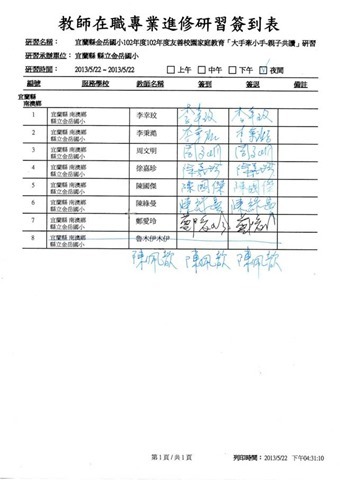 教師在職專業進修研習簽到表
研習名稱： 宜蘭縣金岳國小102年度102年度友善校園家庭教育「大手牽小手-親子共讀」研習
研習承辦單位： 宜蘭縣 縣立金岳國小
研習時間： 2013/5/22 ~ 2013/5/22 □上午 □中午 □下午 ☑夜間
編號 服務學校 教師名稱 簽到 簽退 備註
宜蘭縣
南澳鄉
1 宜蘭縣 南澳鄉 縣立金岳國小 李幸玟 李幸玟 李幸玟
2 宜蘭縣 南澳鄉 縣立金岳國小 李秉澔
3 宜蘭縣 南澳鄉 縣立金岳國小 周文明 周文明 周文明
4 宜蘭縣 南澳鄉 縣立金岳國小 徐嘉珍 徐嘉珍 徐嘉珍
5 宜蘭縣 南澳鄉 縣立金岳國小 陳國傑 陳國傑 陳國傑
6 宜蘭縣 南澳鄉 縣立金岳國小 陳綠曼 陳綠曼 陳綠曼
7 宜蘭縣 南澳鄉 縣立金岳國小 鄭愛玲 鄭愛玲
8 宜蘭縣 南澳鄉 縣立金岳國小 魯木伊木伊
陳佩歆 陳佩歆 陳佩歆
第 1 頁 / 共 1 頁 列印時間：2013/5/22 下午04:31:10